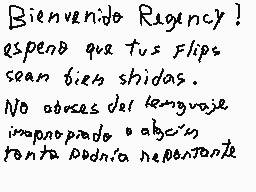 Bienvenido Regency!
espero que tus flips
sean bien shidos.
No abuses del lenguaje
inapropiado o algún
tonto podría reportarte